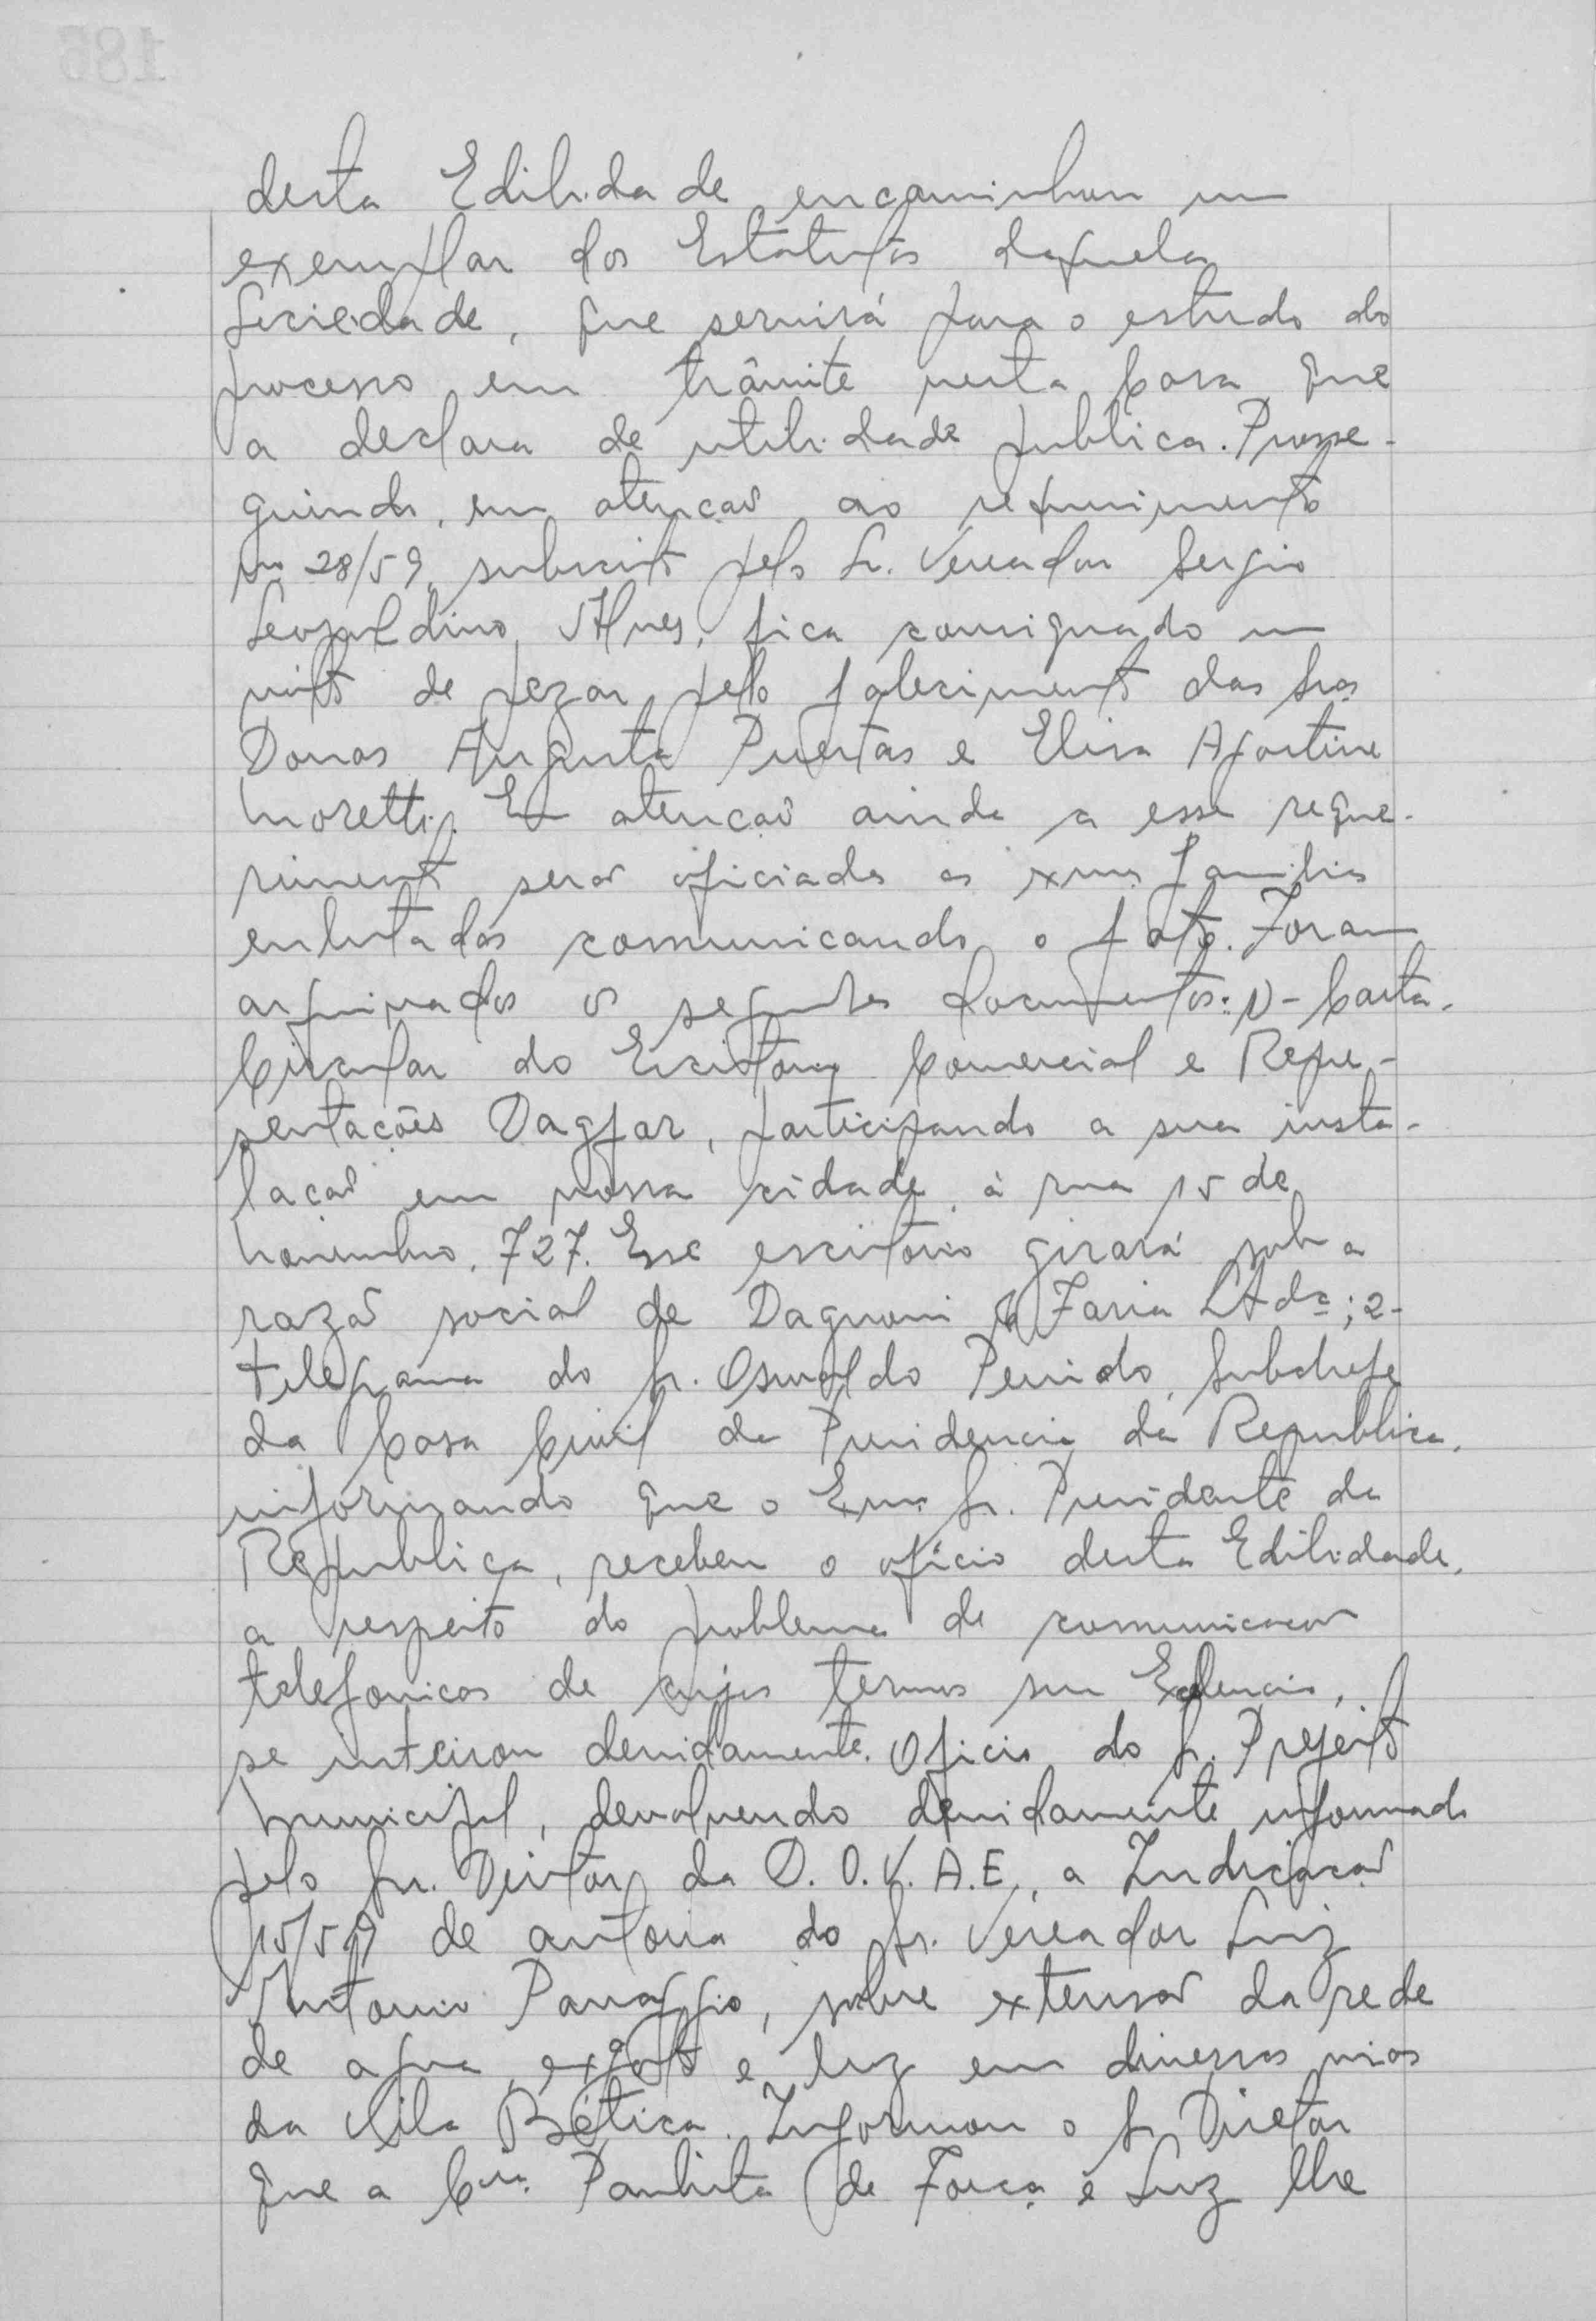 desta Edilidade encaminhou um
exemplar dos Estatutos daquela
Sociedade, que servirá para o estudo do
processo em trâmite nesta Casa que
a declara de utilidade publica. Prosse-
guindo, em atenção ao requerimento
no 28/59, subscrito pelo Sr. Vereador Sergio
Leopoldino Alves, fica consignado um
voto de pezar pelo falecimento das Sras
Donas Augusta Puertas e Elisa Agostine
Moretti. Em atenção ainda a esse reque-
rimento será oficiado as exmas familias
enlutadas comunicando o fato. Foram
arquivados os seguintes documentos: 1) - Carta-
Circular do Escritorio Comercial e Repre-
sentações Dagfar, participando a sua insta-
lação em nossa cidade, á rua 15 de
Novembro, 727. Esse escritorio girará sob a
razão social de Dagnoni & Faria Ltda; 2-
telegrama do Sr. Oswaldo Penido, Subchefe
da Casa Civil da Presidencia da Republica,
informando que o Exmo Sr. Presidente da
Republica, recebeu o oficio desta Edilidade,
a respeito do problema de comunicação
telefonicas de cujos termos sua Exelencia,
se inteirou devidamente. Oficio do Sr. Prefeito
Municipal, devolvendo devidamente informado
pelo Sr. Diretor da D.O.V.A.E., a Indicação
15/59 de autoria do Sr. Vereador Luiz
Antonio Panaggio, sobre extensão da rede
de agua, exgoto e luz em diversas vias
da Vila Bética. Informou o Sr Diretor
que a Cia. Paulista de Força e Luz lhe
185